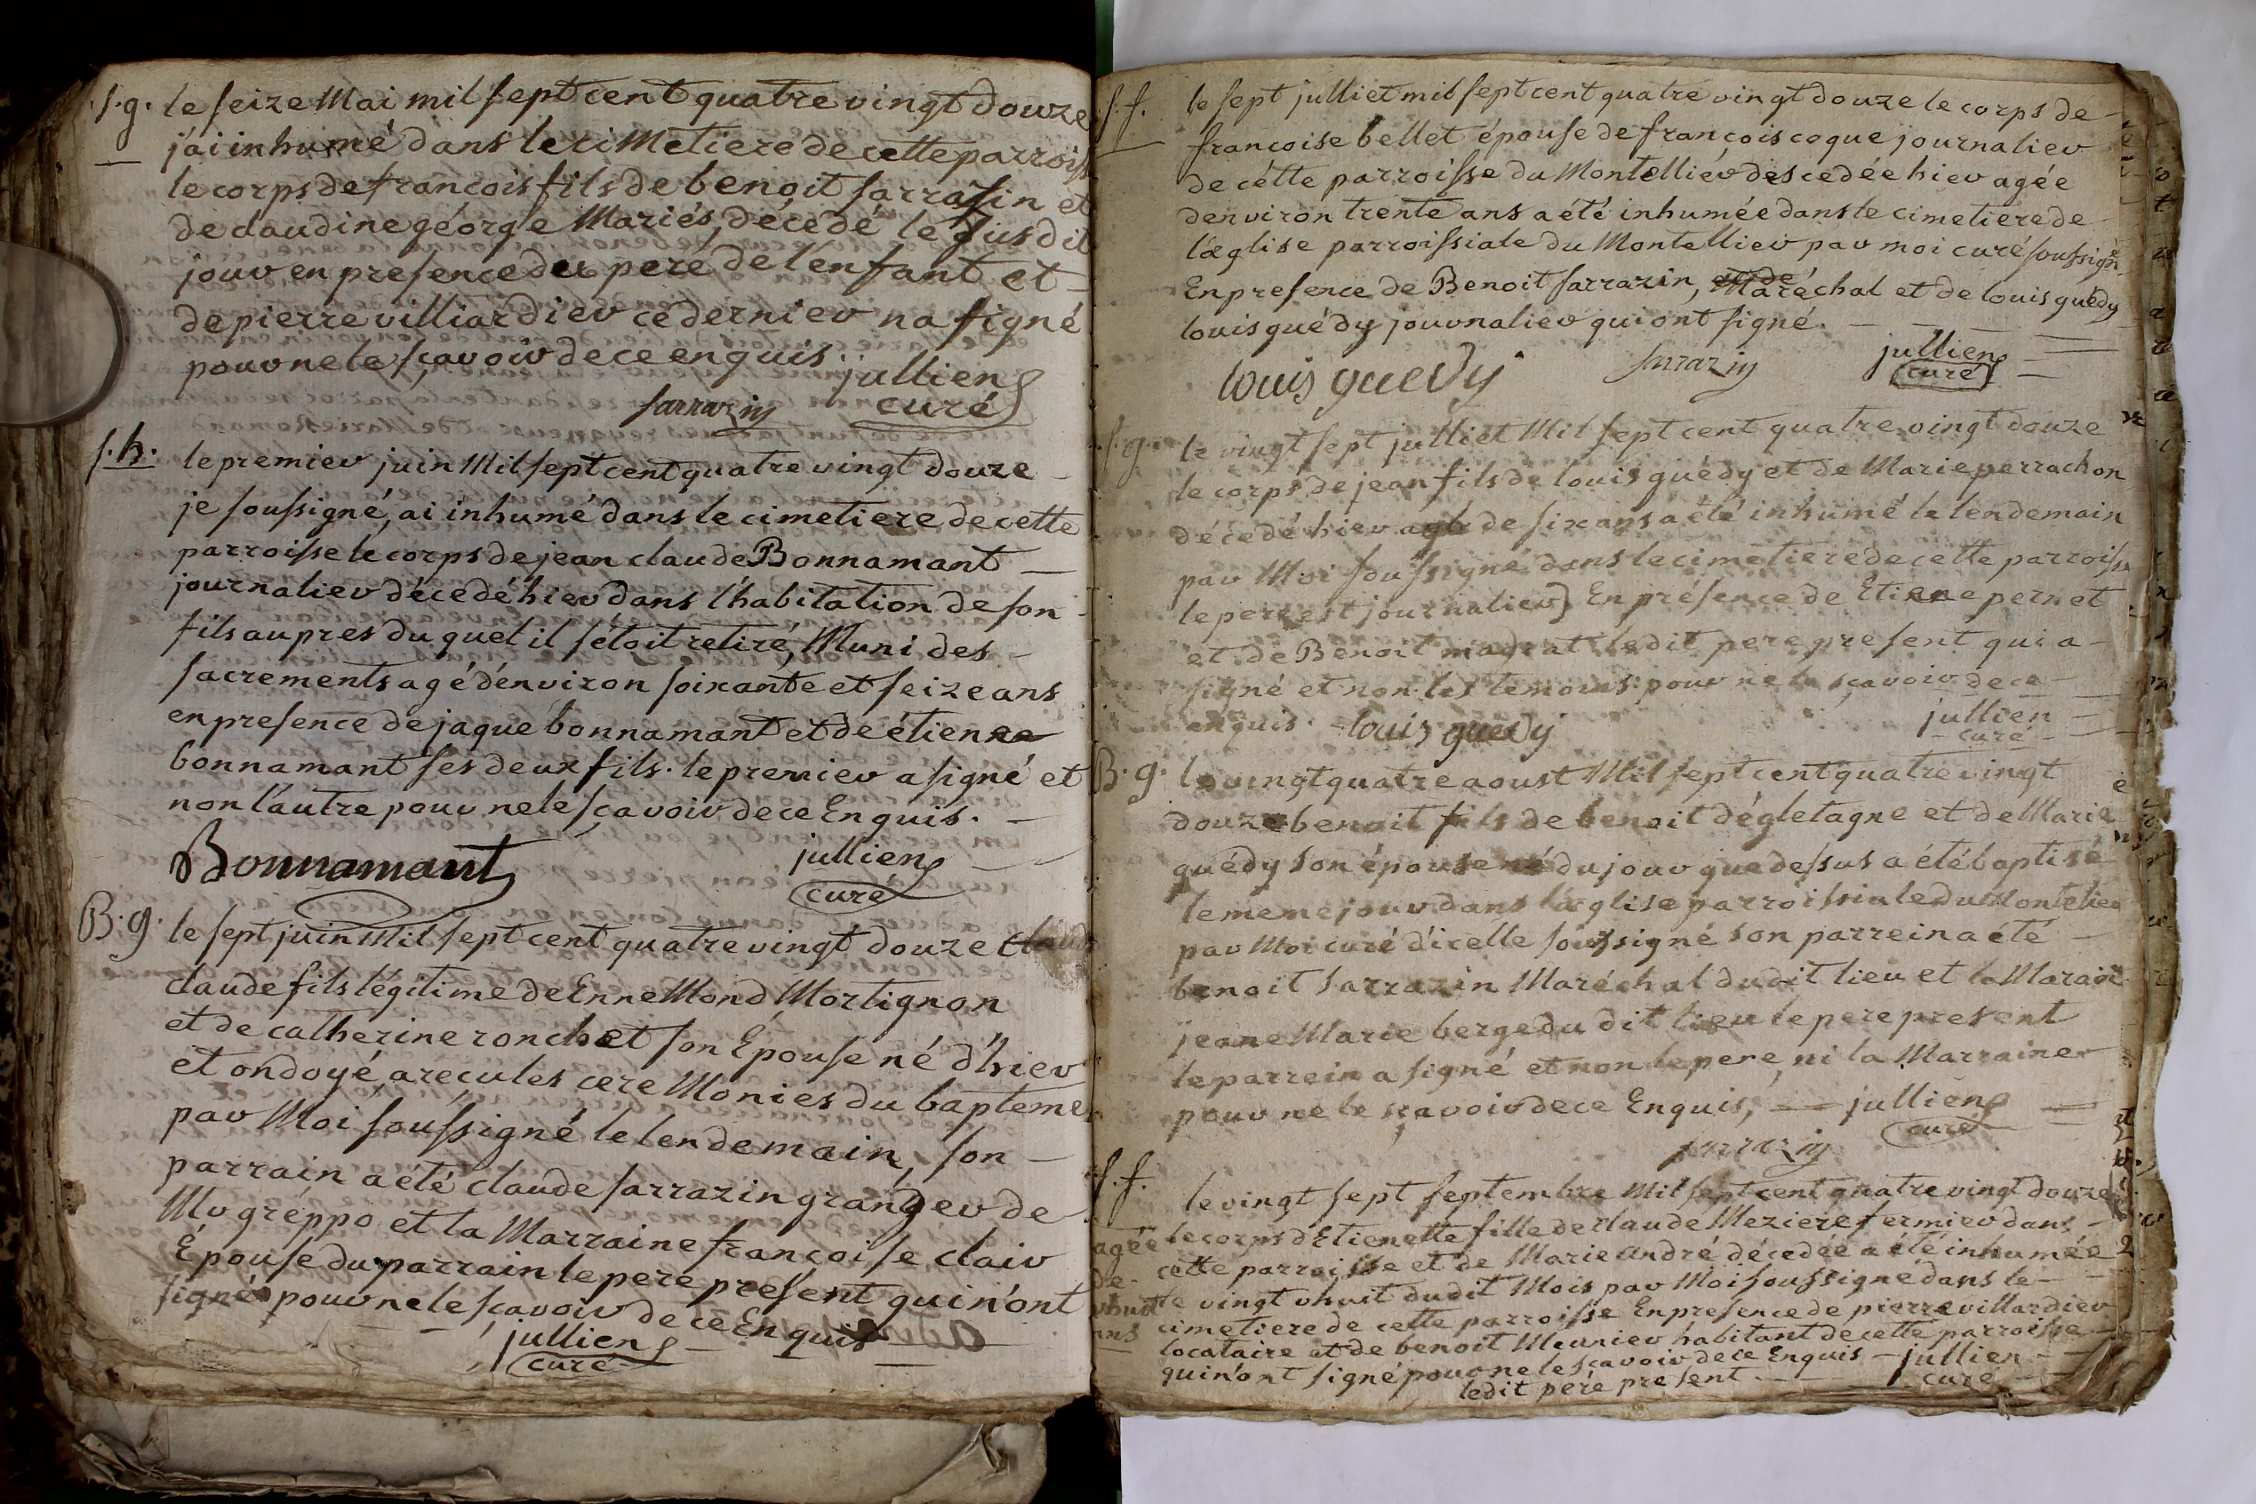 s.g. le seize Mai mil sept cent quatre vingt douze
j'ai inhumé dans le ciMetiere de cette parroiss
le corps de francois fils de benoit sarrasin et
de claudine géorge Mariés, décedé le susdit
jour en presence du pere de l'enfant et
de pierre villiardier ce dernier na signé
pour ne le sçavoir de ce enquis.
jullien
sarrazin curé
s.h. le premier juin Mil sept cent quatre vingt douze
je soussigné, ai inhumé dans le cimetiere de cette
parroisse le corps de jean claude Bonnamant
journalier décedé hier dans l'habitation de son
fils aupres du quel il s'etoit retiré, Muni des
sacrements agé d'énviron soixante et seize ans
en presence de jaque bonnamant et de étienne
bonnamant ses deux fils. le premier a signé et
non l'autre pour ne le sçavoir de ce Enquis.
Bonnamant jullien
curé
B.g. le sept juin Mil sept cent quatre vingt douze
claude fils légitime de EnneMond Mortignon
et de catherine ronchet son Épouse né d'hier
et ondoyé, a recu les cereMonies du bapteme
par Moi soussigné le lendemain, son
parrain a été claude sarrazin granger de
Mr greppo et la Marraine françoise clair
Épouse du parrain le pere présent qui n'ont
signé pour ne le sçavoir de ce Enquis
jullien
curé
s.f. le sept julliet mil sept cent quatre vingt douze le corps de
francoise bellet épouse de francois coque journalier
de cétte parroisse du Montellier déscedée hier agée
denviron trente ans a été inhumée dans le cimetiere de
l'églisе parroissiale du Montellier par moi curé soussigné
En presence de Benoit sarrazin, Maréchal et de louis guédy
louis guédy journalier qui ont signé.
louis guedy sarrazin jullien
curé
s.g. le vingt sept julliet Mil sept cent quatre vingt douze
le corps de jéan fils de louis guédy et de Marie perrachon
décedé hier agé de six ans a été inhumé le lendemain
par Moi soussigné dans le cimetiere de cette parroisse
le pere est journalier) En présence de Etienne pernet
et de Benoit ledit pere present qui a
signé et non les temoins pour ne le sçavoir de ce
enquis. louis guedy jullien
curé
B.g. le vingt quatre aoust Mil sept cent quatre vingt
douze benoit fils de benoit dégletagne et de Marie
guédy son épouse né du jour que dessus a été baptisé
le meme jour dans l'église parroissiale du Montelier
par Moi curé d'icelle soussigné son parrein a été
benoit sarrazin Maréchal dudit lieu et la Maraine
jeane Marie berge du dit lieu le pere present
le parrein a signé et non le pere, ni la Marraine
pour ne le sçavoir de ce Enquis, jullien
sarrazin curé
s.f. le vingt sept septembre Mil sept cent quatre vingt douze
le corps d'Etienette fille de claude Meziere fermier dans
agée cette parroisse et de Marie andré décedée a été inhumée
de le vingt vhuit dudit Mois par Moi soussigné dans le
vhuit cimetiere de cette parroisse En presence de pierre villardier
ans locataire et de benoit Meunier habitant de cette parroisse
qui n'ont signé pour ne le sçavoir de ce Enquis jullien
ledit pere present curé